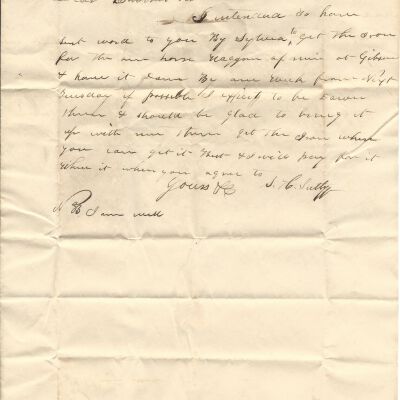 I intended to have
sent word to you By Sylvea to get the Iron
for the one horse Waggon of mine at Gibson
& have it done By one week from Next
Tuesday if possible I expect to be down
then & should be glad to bring it
up with me then get the Iron where
you can get it Best & I will pay for it
when you agree to
Yours &c
NB I am well